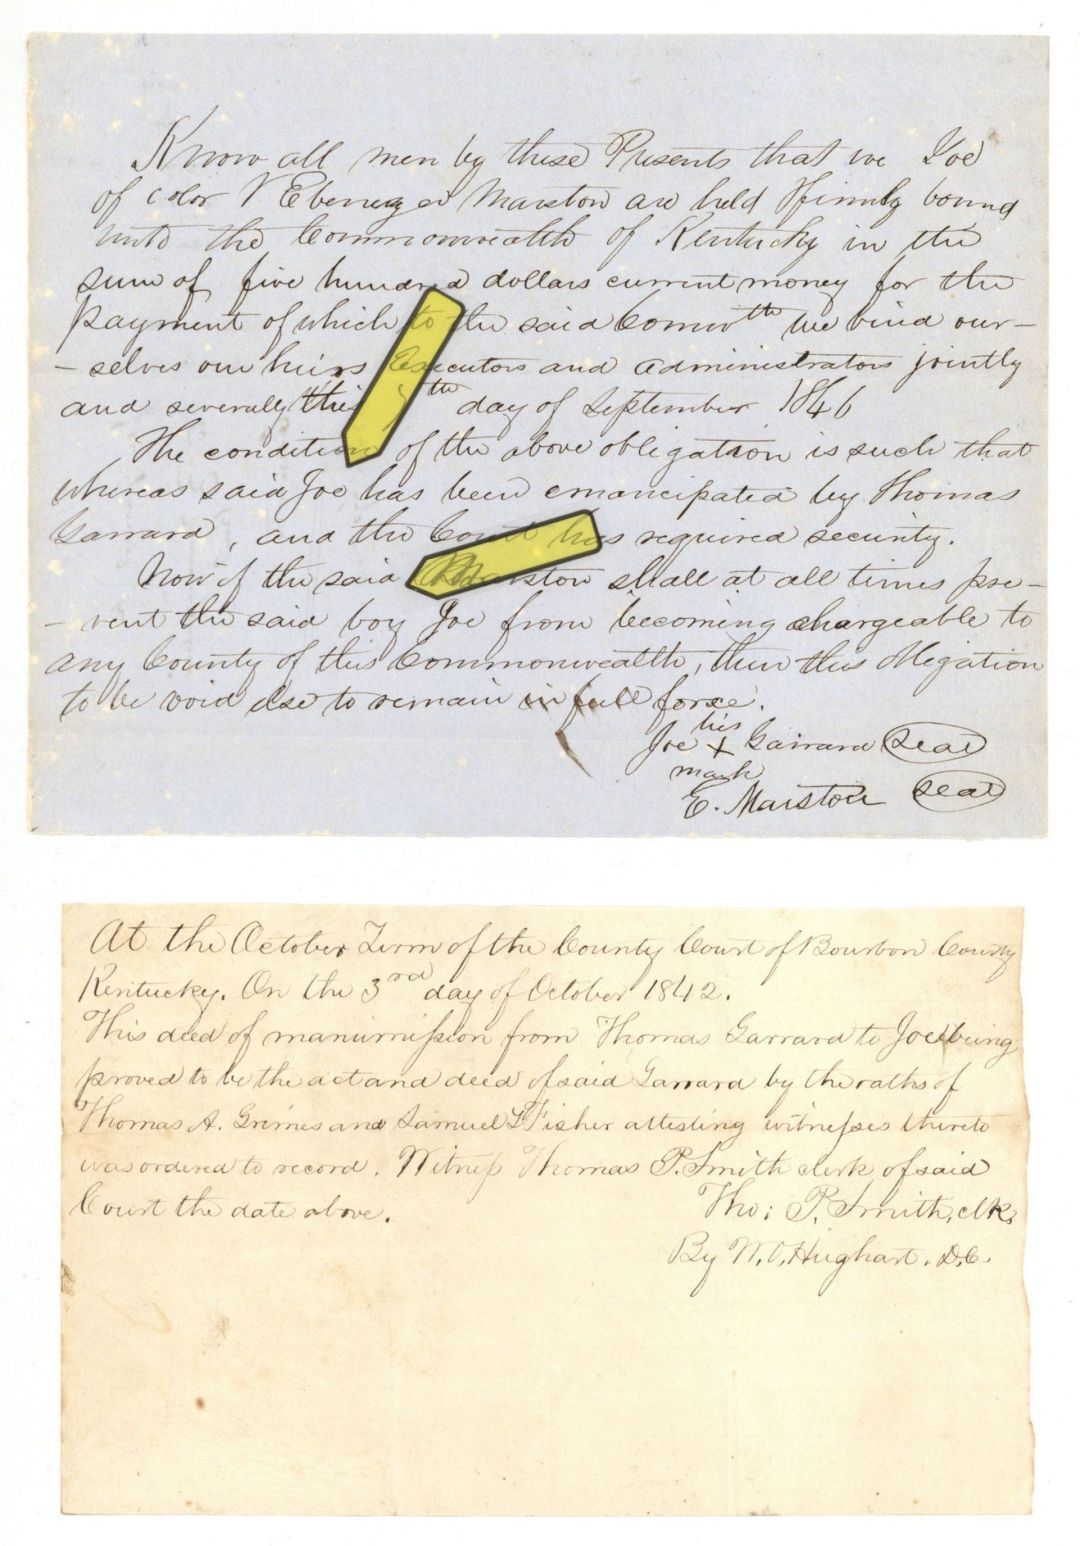 Know all men by these Presents that we Joe
of color & Ebenezer Marston are held & firmly bound
unto the Commonwealth of Kentucky in the
sum of five hundred dollars current money for the
payment of which to the said Comwth we bind our-
-selves our heirs Executors and administrators jointly
and severally this th day of September 1846
The condition of the above obligation is such that
whereas said Joe has been emancipated by Thomas
Garrard, and the Court has required security.
Now if the said Marston shall at all times pre-
-vent the said boy Joe from becoming chargeable to
any County of this Commonwealth, then this obligation
to be void else to remain in full force.
his
Joe X Garrard seal
mark
E. Marston seal
At the October Term of the County Court of Bourbon County
Kentucky. On the 3rd day of October 1842.
This deed of manumission from Thomas Garrard to Joe being
proved to be the act and deed of said Garrard by the oaths of
Thomas A. Grimes and Samuel Fisher attesting witnesses thereto
was ordered to record. Witness Thomas P. Smith clerk of said
Court the date above.
Tho: P. Smith, clk.
By W. O. Hughart. D.C.